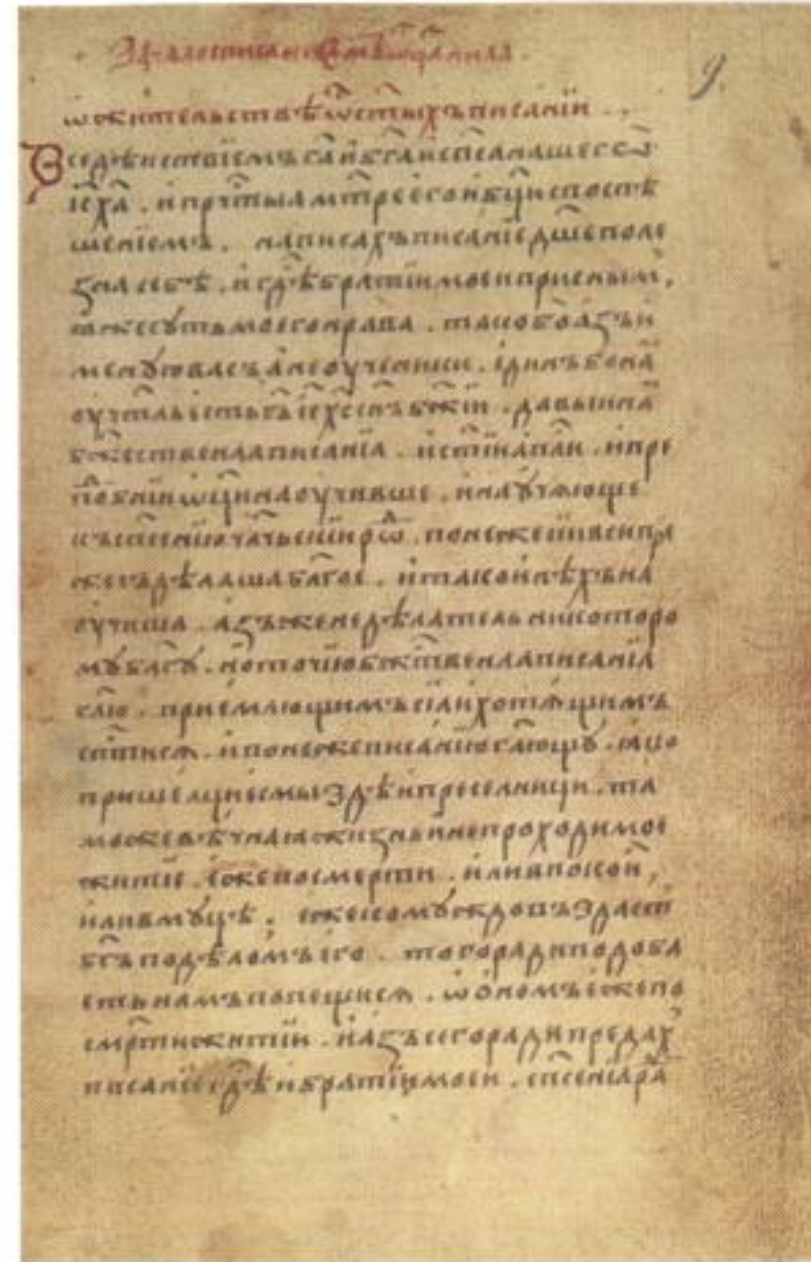 ѡ жительствѣ ѿ ст҃ыхъ писаніи .
Вседѣиствіемъ г҃а и б҃га и сп҃са нашего
іс҃ х҃а . и прч҃тыа мт҃ре его и бц҃и споспѣ
шеніемъ . написахъ писаніе дш҃еполе
зна себѣ . и г҃дѣ братіи моеи присным̾ ,
иже суть моего нрава . тако бо азъ и
меную васъ а не оученики . единъ бо на҃
оучт҃ль есть г҃ь іс҃ х҃с сн҃ъ бж҃іи . давыи на҃
бжественаа писаніа . и ст҃іи ап҃ли . и пре
пⷣобніи ѡц҃и наоучивше . и научяюще
къ сп҃сенію чл҃чьскіи рѡⷣ . понеже сіи вси пре
же съдѣлаша бл҃гое . и тако инѣхъ на
оучиша . азъ же не дѣлатель никоторо
му бл҃гу . но точію бжⷭтвенаа писаніа
гл҃ю . приемлющимъ сіа и хотящимъ
сп҃стися . и понеже писанію гл҃ющу . яко
пришелци есмы здѣ и преселници . та
може вѣчнаа жизнь и непроходимое
житіе . еже по смерти . или в покои ,
или в муцѣ . еже комуждо въздасть
б҃гъ по дѣломъ его . того ради подоба
еть намъ попещися . ѡ ономъ еже по
смр҃ти житіи . и азъ сего ради предах̾
писаніе г҃дѣ и братіи моеи . сп҃сеніа ра҃